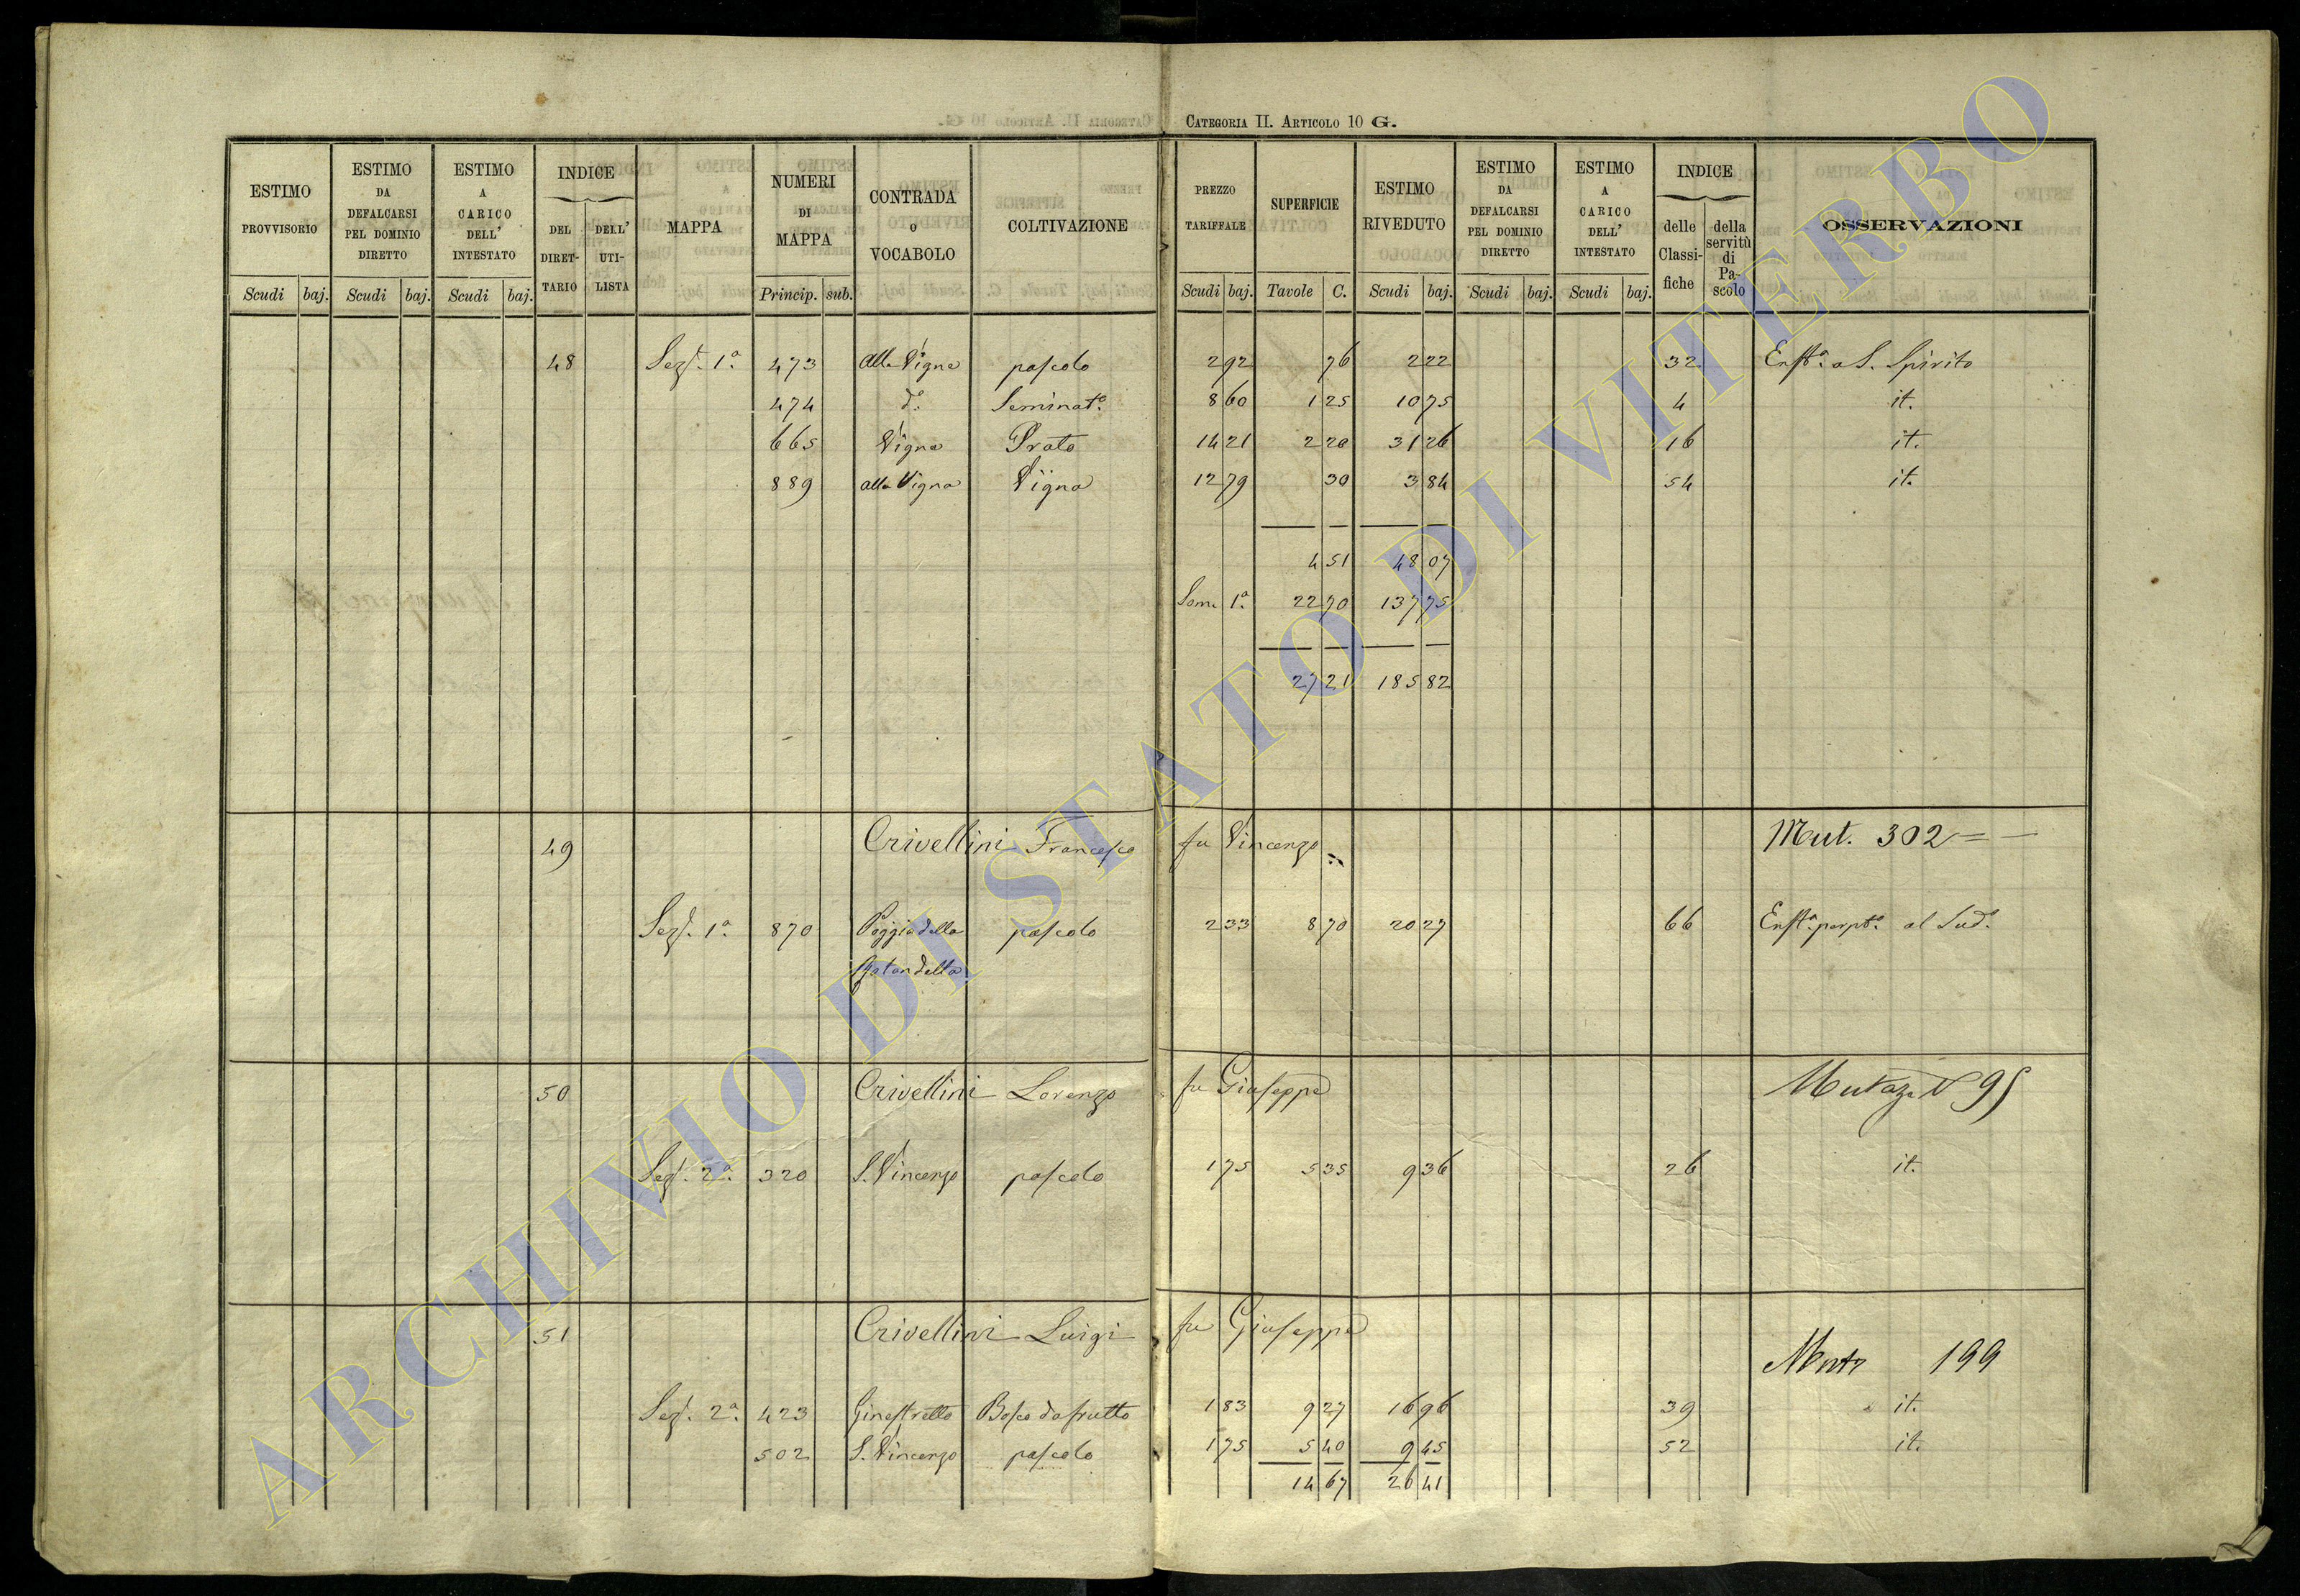 CATEGORIA II. ARTICOLO 10 G.
ESTIMO PROVVISORIO Scudi baj. ESTIMO DA DEFALCARSI PEL DOMINIO DIRETTO Scudi baj. ESTIMO A CARICO DELL' INTESTATO Scudi baj. INDICE DEL DIRET-TARIO DELL' UTI-LISTA MAPPA NUMERI DI MAPPA Princip. sub. CONTRADA O VOCABOLO COLTIVAZIONE PREZZO TARIFFALE Scudi baj. SUPERFICIE Tavole C. ESTIMO RIVEDUTO Scudi baj. ESTIMO DA DEFALCARSI PEL DOMINIO DIRETTO Scudi baj. ESTIMO A CARICO DELL' INTESTATO Scudi baj. INDICE delle Classi-fiche della servitù di Pa-scolo OSSERVAZIONI
48 Sez. 1ª 473 alla Vigna pascolo 2 92 76 2 22 32 Enfta. a S. Spirito
474 do. Seminato. 8 60 1 25 10 75 4 it.
665 Vigna Prato 14 21 2 20 31 26 16 it.
889 alla Vigna Vigna 12 79 30 3 84 54 it.
4 51 48 07
Som. 1ª 22 70 137 75
27 21 185 82
49 Crivellini Francesco fu Vincenzo Mut. 302
Sez. 1ª 870 Poggio della 	pascolo 2 33 8 70 20 27 66 Enfta. perpta. al Sudo.
50 Crivellini Lorenzo fu Giuseppe Mutaz. N 95
Sez. 2ª 320 S. Vincenzo pascolo 1 75 5 35 9 36 26 it.
51 Crivellini Luigi fu Giuseppe
199
Sez. 2ª 423 Ginestretto Bosco da frutto 1 83 9 27 16 96 39 it.
502 S. Vincenzo pascolo 1 75 5 40 9 45 52 it.
14 67 26 41
ARCHIVIO DI STATO DI VITERBO